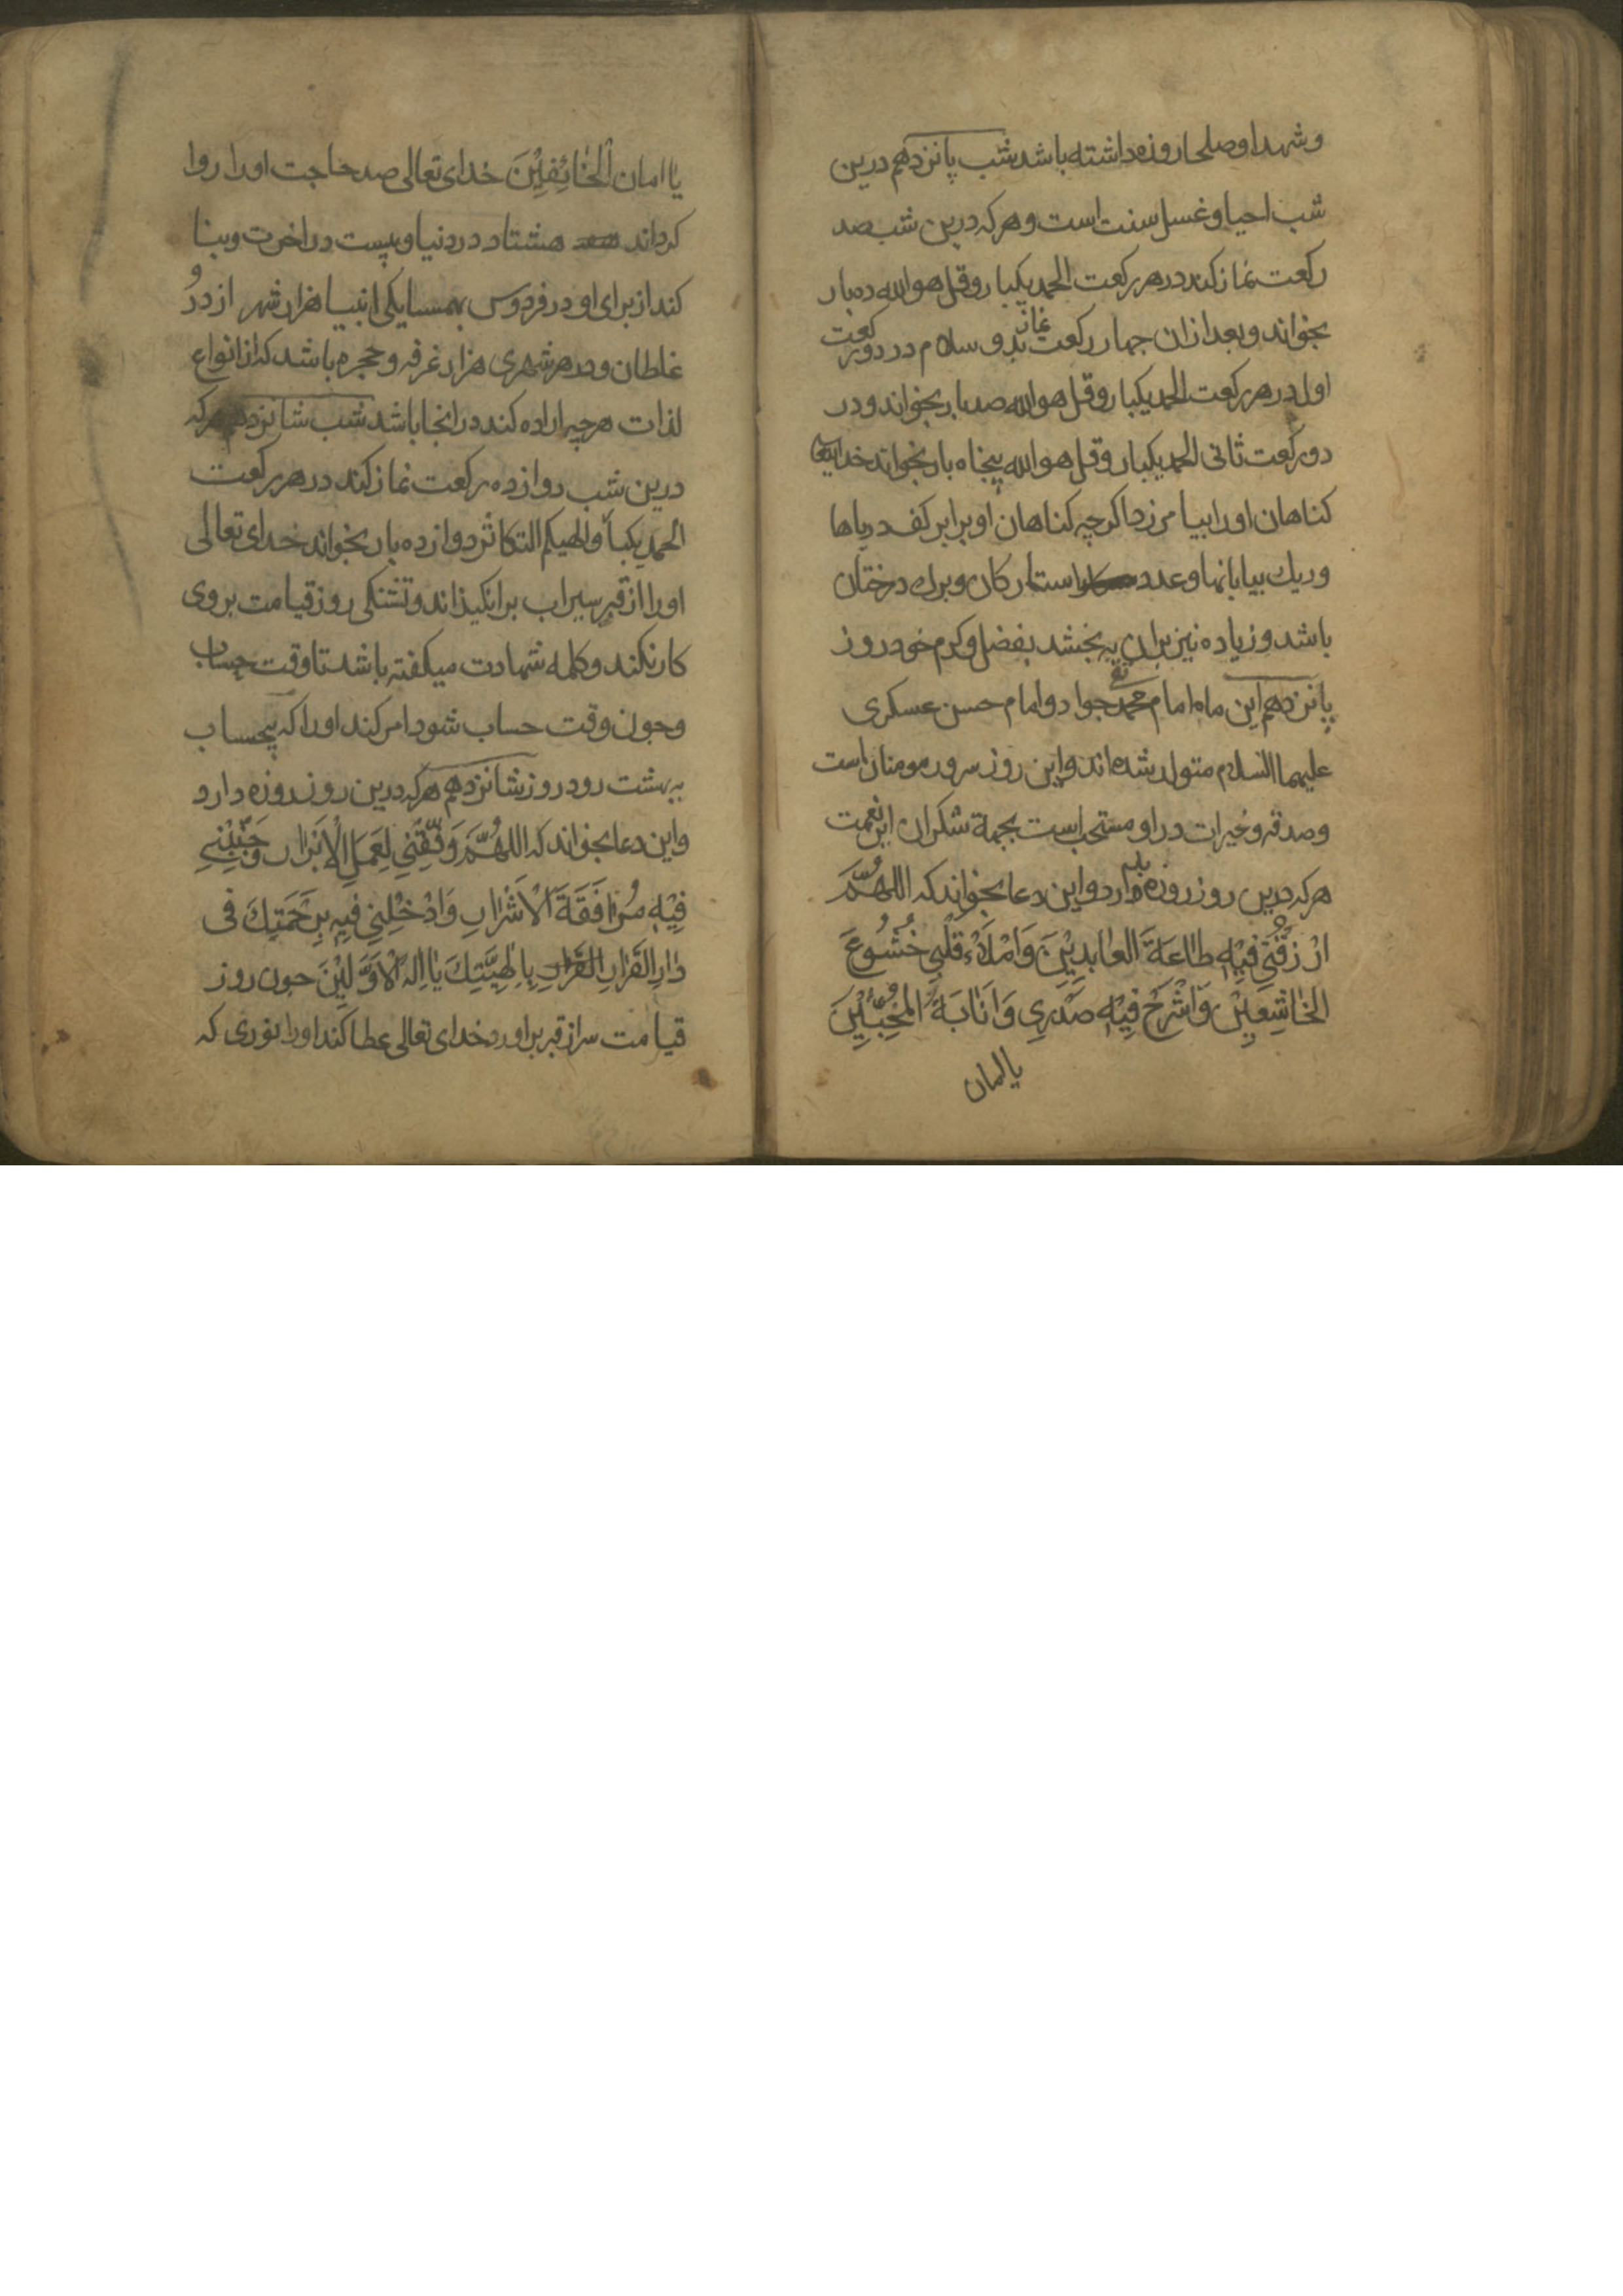 وشهدا وصلحا روزه داشته باشد شب پانزدهم درین
شب احیا و غسل سنت است و هرکه درین شب صد
رکعت نماز کند در هر رکعت الحمد یکبار و قل هو الله ده بار
بخواند و بعد ازان چهار رکعت نماز بدو سلام در دو رکعت
اول در هر رکعت الحمد یکبار و قل هو الله صد بار بخواند و در
دو رکعت ثانی الحمد یکبار و قل هو الله پنجاه بار بخواند خدایتعا
کناهان اورا بیامرزد اکرچه کناهان او برابر کف دریاها
وریک بیابانها وعدد ستارکان وبرک درختان
باشد وزیاده نیز بران به بخشد بفضل وکرم خود روز
پانزدهم این ماه امام محمد تقی جواد وامام حسن عسکری
علیهما السلام متولد شده اند واین روز سرور مومنان است
وصدقه وخیرات در او مستحب است بجهة شکران این نعمت
هرکه درین روز روزه بدارد واین دعا بخواند که اللهُمَّ
ارْزُقْنِي فِيْهِ طَاعَةَ العَابِدِيْنَ وَامْلَاْءْ قَلْبِي خُشُوعَ
الخَاشِعِيْنَ وَاشْرَحْ فِيْهِ صَدْرِي وَانَابَةَ المُخْبِتِيْنَ
یا امان
یا امان الْخَائِفِيْنَ خدای تعالی صد حاجت اورا روا
کرداند هشتاد در دنیا وبیست در اخرت وبنا
کند از برای او در فردوس بهمسایکی انبیا هزار شهر از دُر
غلطان و در هر شهری هزار غرفه وحجره باشد که از انواع
لذات هرچه اراده کند در انجا باشد شب شانزدهم هرکه
درین شب دوازده رکعت نماز کند در هر رکعت
الحمد یکبار والهیکم التکاثر دوازده بار بخواند خدای تعالی
اورا از قبر سیراب برانکیزاند وتشنکی روز قیامت بر وی
کار نکند وکلمه شهادت میکفته باشد تا وقت حساب
وچون وقت حساب شود امر کند اورا که بیحساب
به بهشت رود روز شانزدهم هرکه درین روز روزه دارد
واین دعا بخواند که اللهُمَّ وَفِّقْنِي لِعَمَلِ الْاَبْرَارِ وَجَنِّبْنِي
فِيْهِ مُرَافَقَةَ الْاَشْرَارِ وَادْخِلْنِي فِيهِ بِرَحْمَتِكَ فی
دَارِ القَرَارِ بِاِلٰهِيَّتِكَ يَا اِلٰهَ الْاَوَّلِيْنَ چون روز
قیامت سر از قبر براورد خدای تعالی عطا کند اورا نوری که